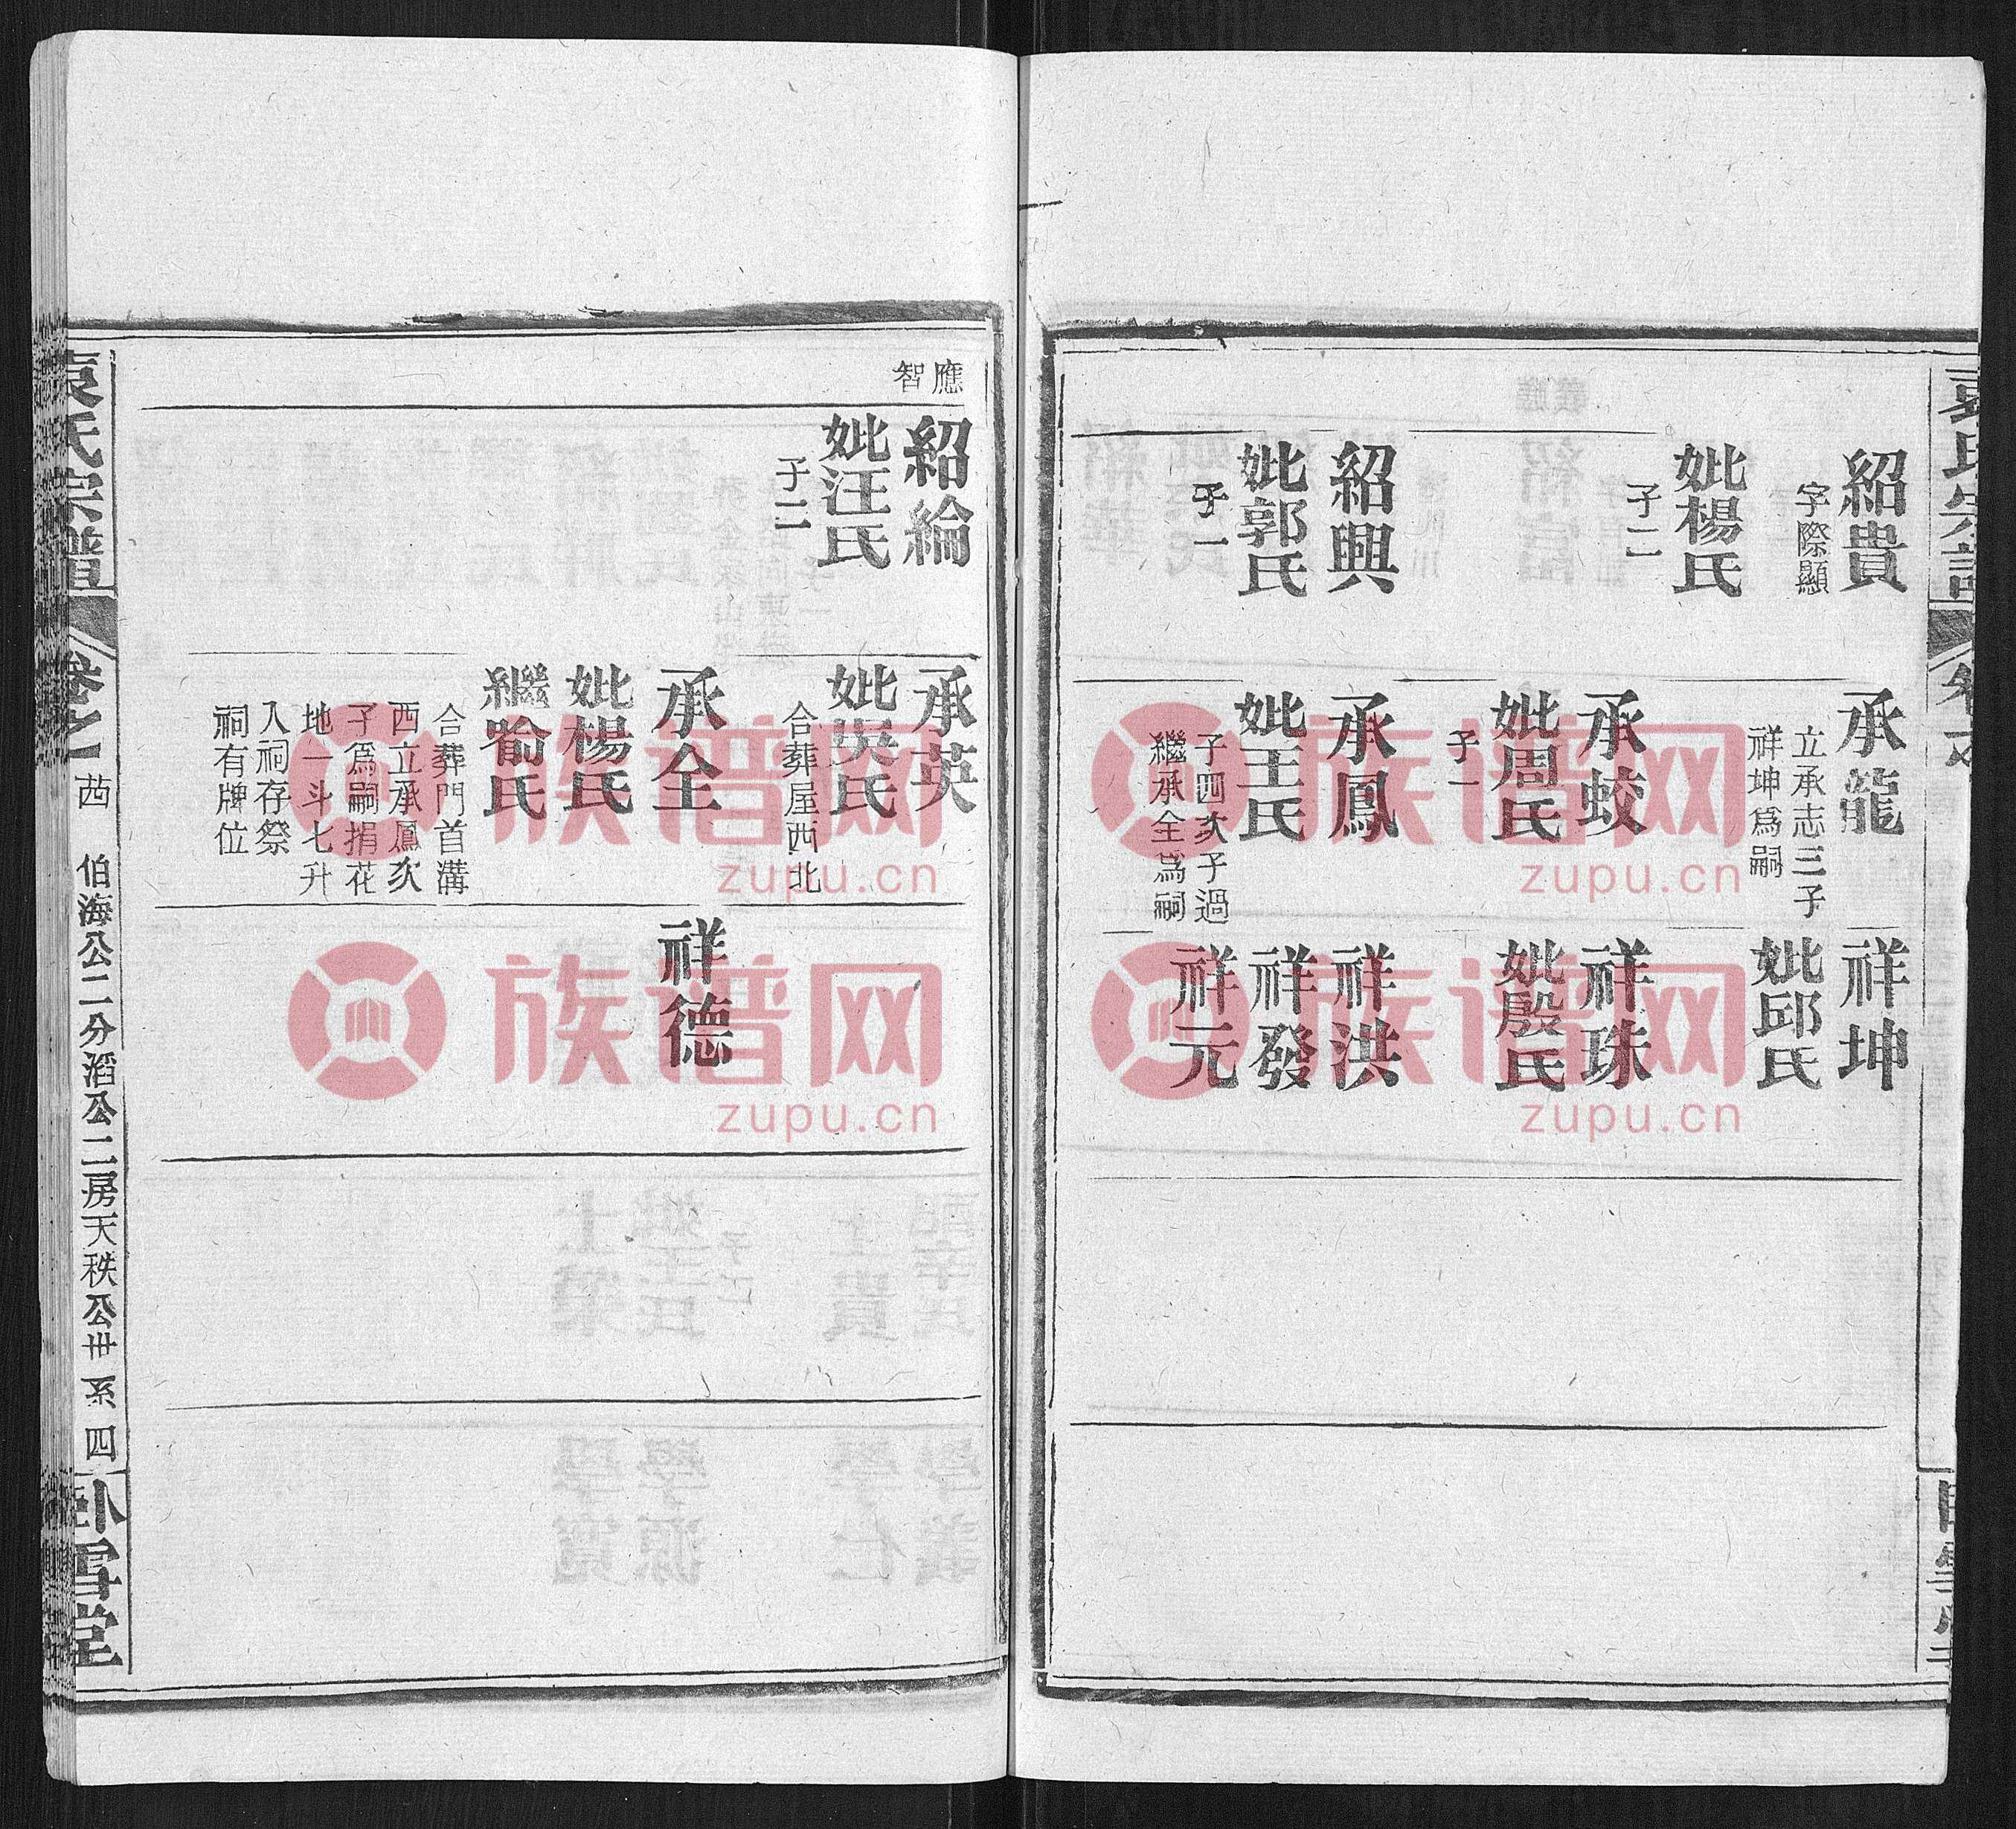 紹貴
字際顯
妣楊氏
子二
紹興
妣郭氏
子一
承龍
立承志三子
祥坤爲嗣
承蛟
妣周氏
子一
承鳳
妣王氏
子四次子過
繼承全爲嗣
祥坤
妣邱氏
祥珠
妣殷氏
祥洪
祥發
祥元
應
智
紹綸
妣汪氏
子二
承英
妣吳氏
合葬屋西北
承全
妣楊氏
繼喻氏
合葬門首溝
西立承鳳次
子爲嗣捐花
地一斗七升
入祠存祭
祠有牌位
祥德
袁氏宗譜
卷之
伯海公二分滔公二房天秩公世系 四
臥雪堂
族谱网
zupu.cn
族谱网
zupu.cn
族谱网
zupu.cn
族谱网
zupu.cn